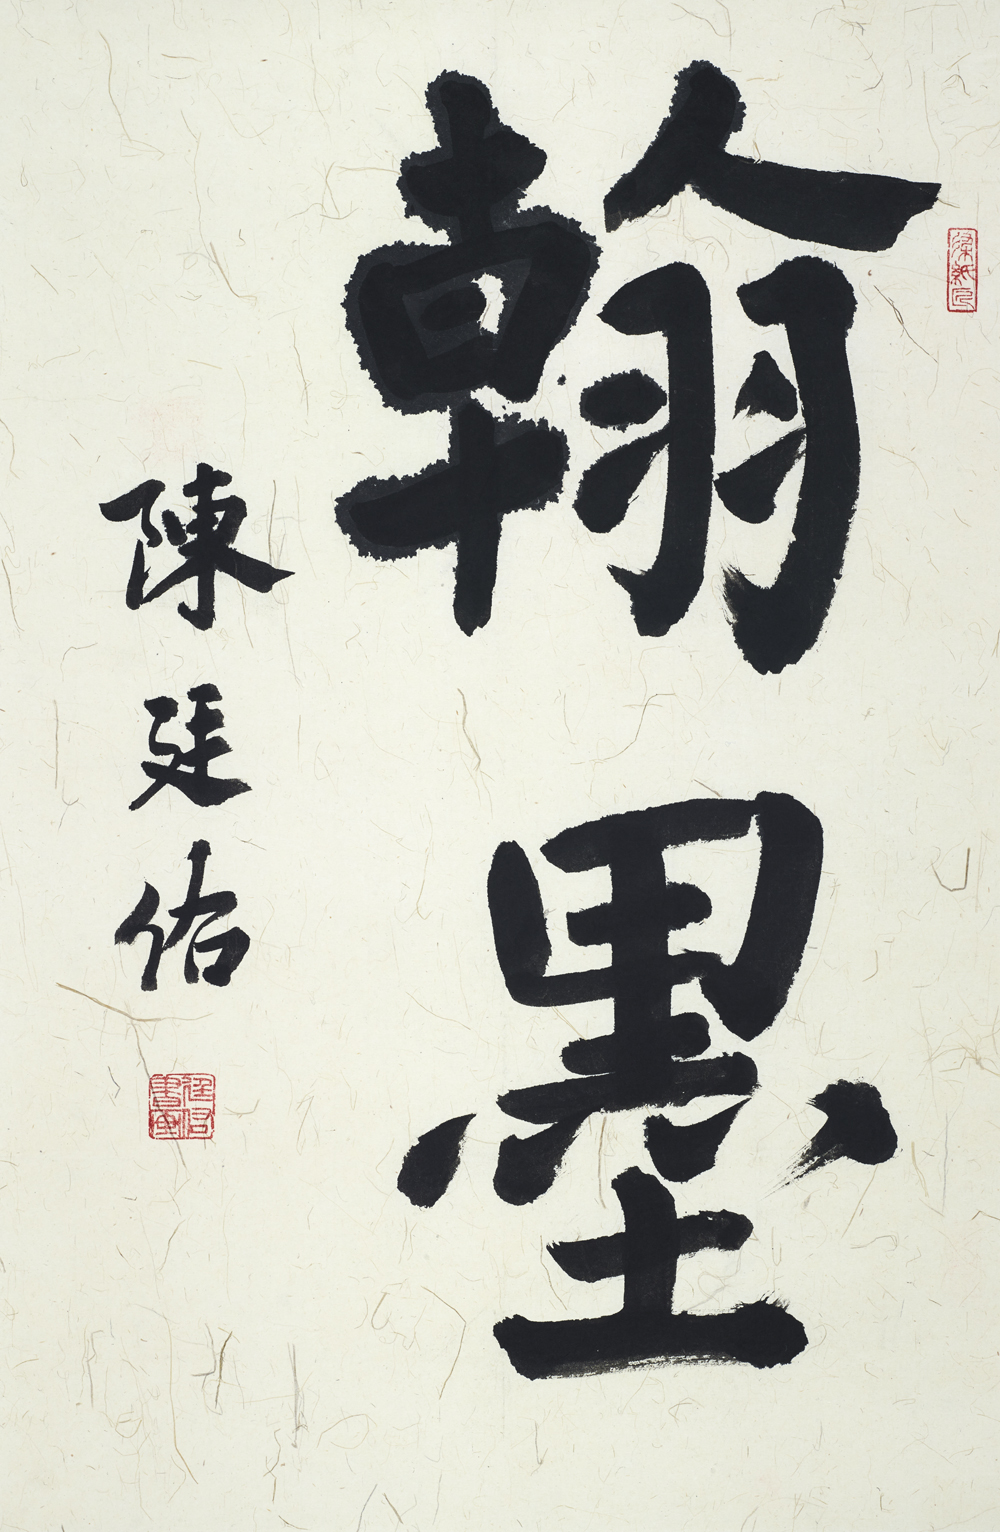 翰墨
陳廷佑